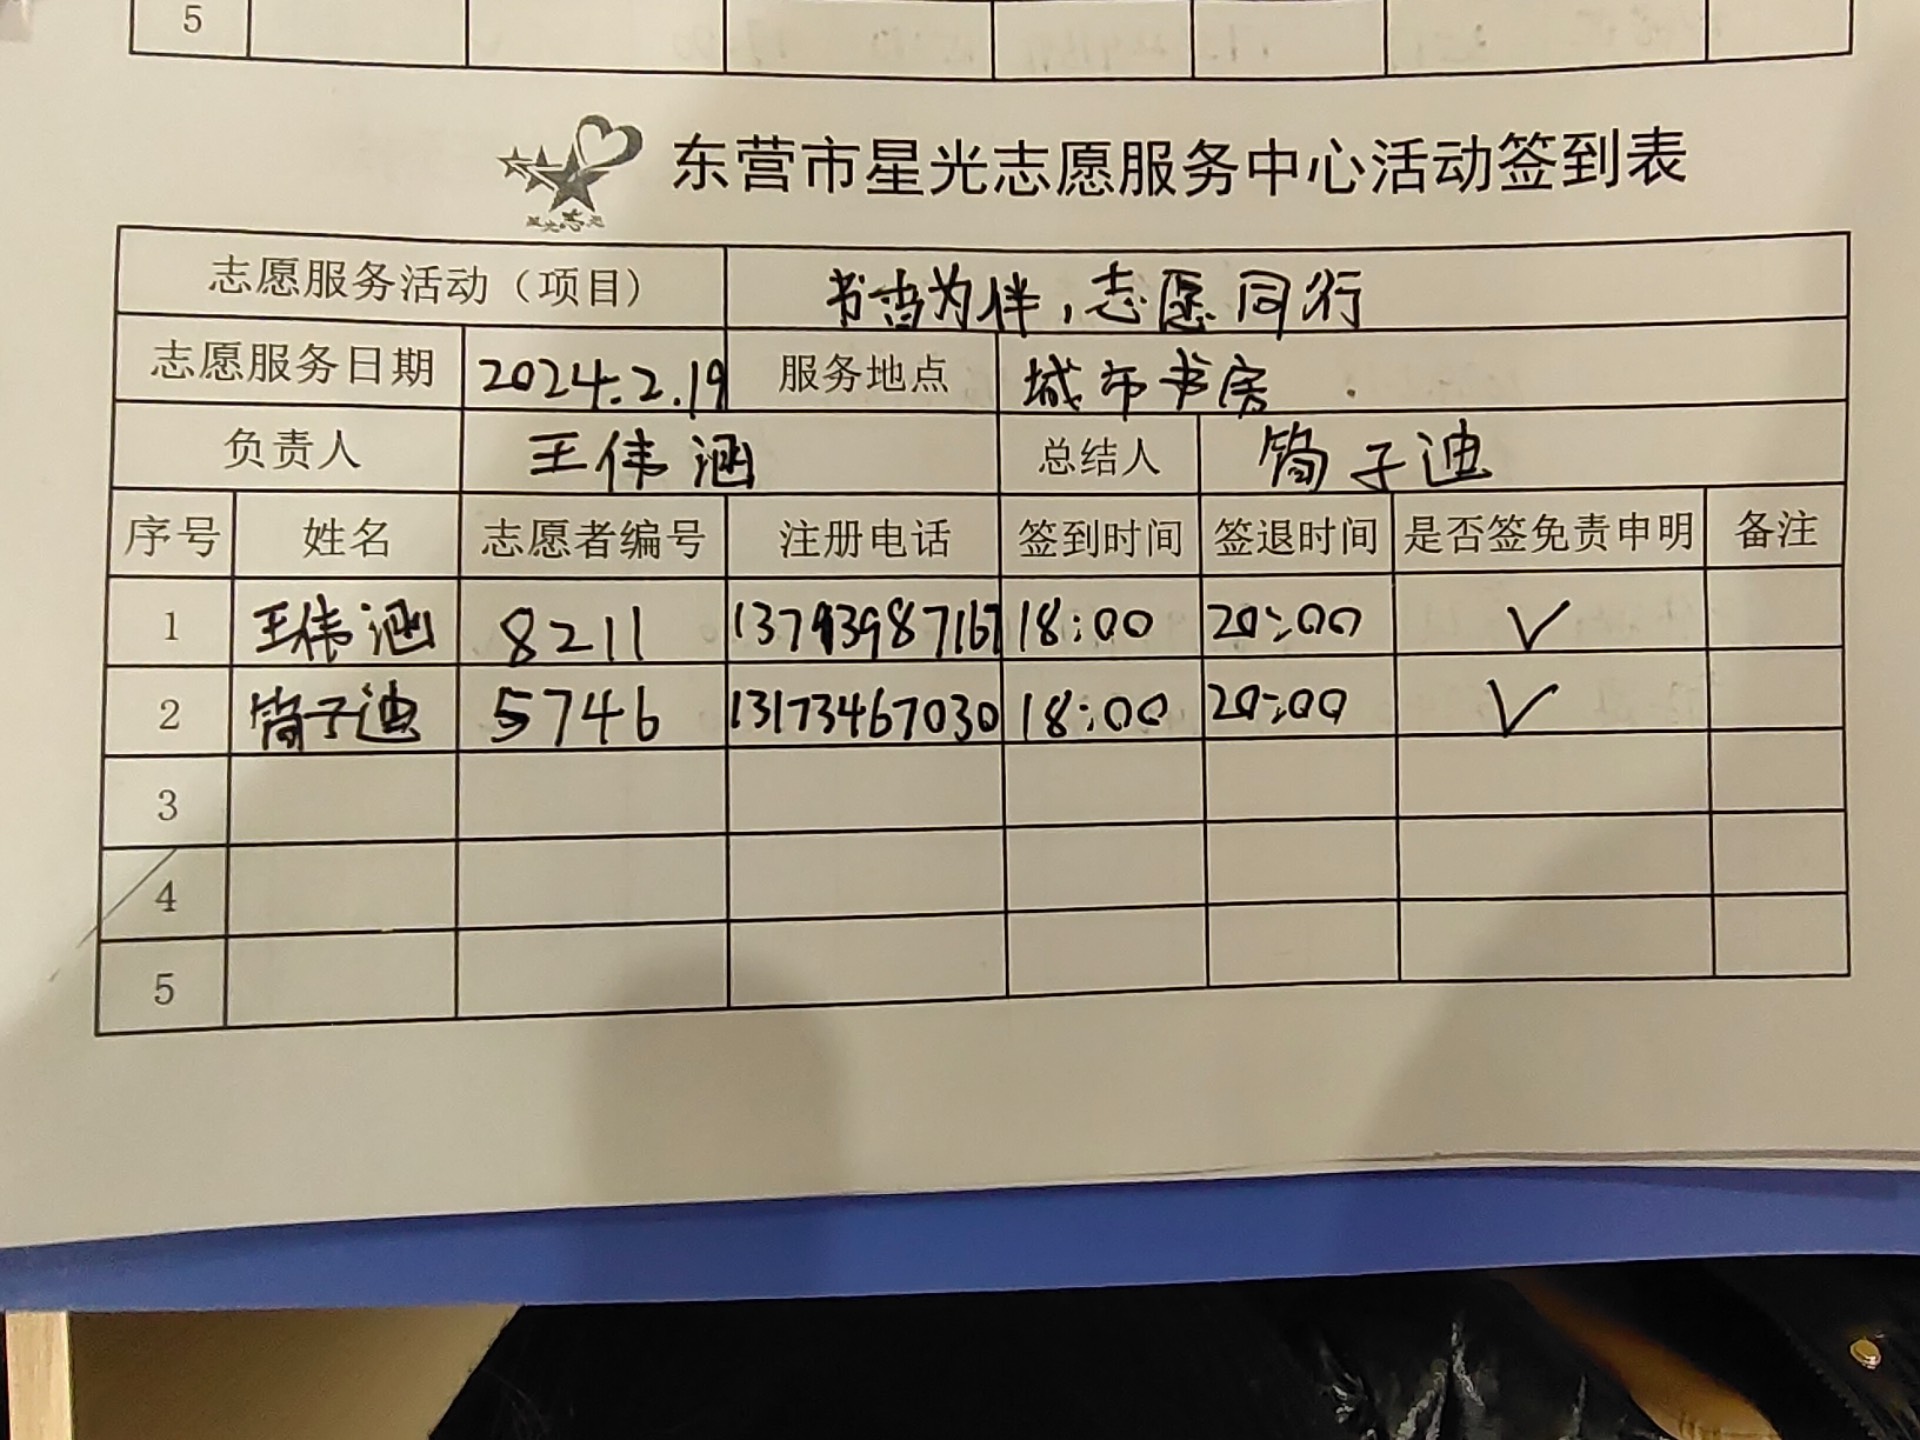 5
东营市星光志愿服务中心活动签到表
星光志愿
志愿服务活动（项目） 书香为伴，志愿同行
志愿服务日期 2024.2.19 服务地点 城市书房
负责人 王伟涵 总结人 简子迪
序号 姓名 志愿者编号 注册电话 签到时间 签退时间 是否签免责申明 备注
1 王伟涵 8211 13793987167 18:00 20:00 √
2 简子迪 5746 13173467030 18:00 20:00 √
3
4
5